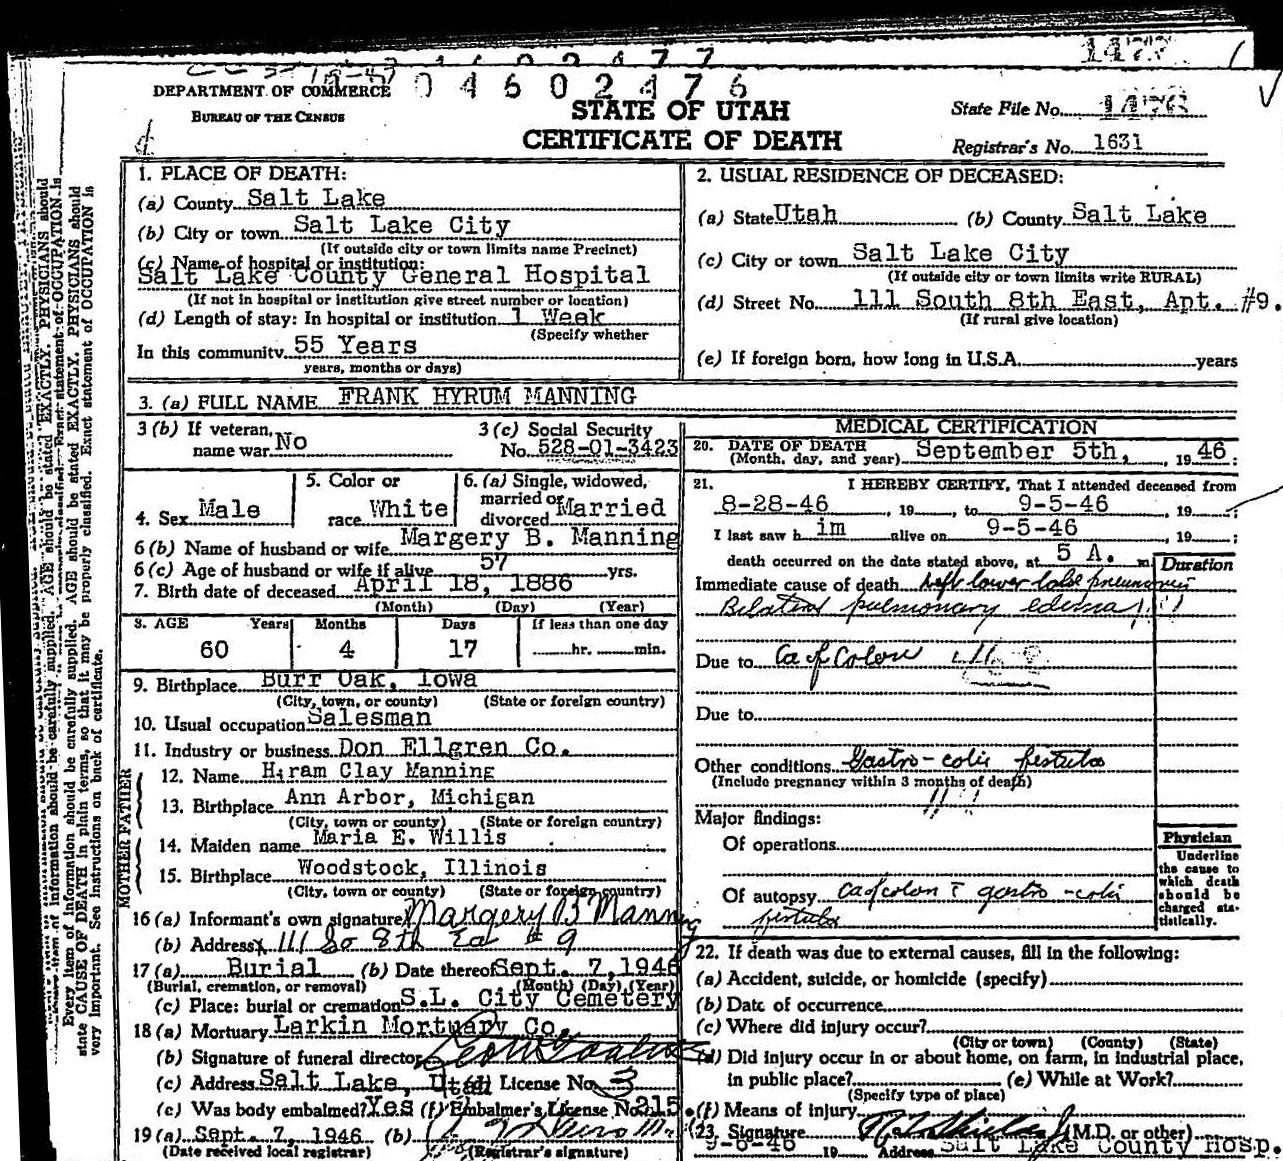 1477
0 4 6 0 2 4 7 6
DEPARTMENT OF COMMERCE
BUREAU OF THE CENSUS
STATE OF UTAH
CERTIFICATE OF DEATH
State File No. 1476
Registrar's No. 1631
1. PLACE OF DEATH:
(a) County Salt Lake
(b) City or town Salt Lake City
(If outside city or town limits name Precinct)
(c) Name of hospital or institution:
Salt Lake County General Hospital
(If not in hospital or institution give street number or location)
(d) Length of stay: In hospital or institution 1 Week
(Specify whether
In this community 55 Years
years, months or days)
2. USUAL RESIDENCE OF DECEASED:
(a) State Utah (b) County Salt Lake
(c) City or town Salt Lake City
(If outside city or town limits write RURAL)
(d) Street No. 111 South 8th East, Apt. #9.
(If rural give location)
(e) If foreign born, how long in U.S.A. years
3. (a) FULL NAME FRANK HYRUM MANNING
3 (b) If veteran, name war No
3 (c) Social Security No. 528-01-3423
4. Sex Male
5. Color or race White
6. (a) Single, widowed, married or divorced Married
6 (b) Name of husband or wife Margery B. Manning
6 (c) Age of husband or wife if alive 57 yrs.
7. Birth date of deceased April 18, 1886
(Month) (Day) (Year)
8. AGE Years Months Days If less than one day
60 4 17 hr. min.
9. Birthplace Burr Oak, Iowa
(City, town, or county) (State or foreign country)
10. Usual occupation Salesman
11. Industry or business Don Ellgren Co.
FATHER
12. Name Hiram Clay Manning
13. Birthplace Ann Arbor, Michigan
(City, town or county) (State or foreign country)
MOTHER
14. Maiden name Maria E. Willis
15. Birthplace Woodstock, Illinois
(City, town or county) (State or foreign country)
16 (a) Informant's own signature Margery B Manning
(b) Address 111 So 8th Ea # 9
17 (a) Burial (b) Date thereof Sept. 7, 1946
(Burial, cremation, or removal) (Month) (Day) (Year)
(c) Place: burial or cremation S.L. City Cemetery
18 (a) Mortuary Larkin Mortuary Co.
(b) Signature of funeral director
(c) Address Salt Lake, Utah (d) License No. 3
(e) Was body embalmed? Yes (f) Embalmer's License No. 215.
19 (a) Sept. 7, 1946 (b)
(Date received local registrar) (Registrar's signature)
MEDICAL CERTIFICATION
20. DATE OF DEATH
(Month, day, and year) September 5th, , 19 46 ;
21. I HEREBY CERTIFY, That I attended deceased from
8-28-46 , 19 , to 9-5-46 , 19 ;
I last saw h im alive on 9-5-46 , 19 ;
death occurred on the date stated above, at 5 A. m
Duration
Immediate cause of death Left lower lobe pneumonia
Bilateral pulmonary edema
Due to Ca of Colon
Due to
Other conditions Gastro-colic fistula
(Include pregnancy within 3 months of death)
Major findings:
Of operations
Of autopsy Ca of colon c̄ gastro-colic
fistula
Physician
Underline
the cause to
which death
should be
charged sta-
tistically.
22. If death was due to external causes, fill in the following:
(a) Accident, suicide, or homicide (specify)
(b) Date of occurrence
(c) Where did injury occur?
(City or town) (County) (State)
(d) Did injury occur in or about home, on farm, in industrial place,
in public place? (e) While at Work?
(Specify type of place)
(f) Means of injury
23. Signature (M.D. or other)
9-6-46 19 Address Salt Lake County Hosp.
Every item of information should be carefully supplied. AGE should be stated EXACTLY. PHYSICIANS should
state CAUSE OF DEATH in plain terms, so that it may be properly classified. Exact statement of OCCUPATION is
very important. See instructions on back of certificate.